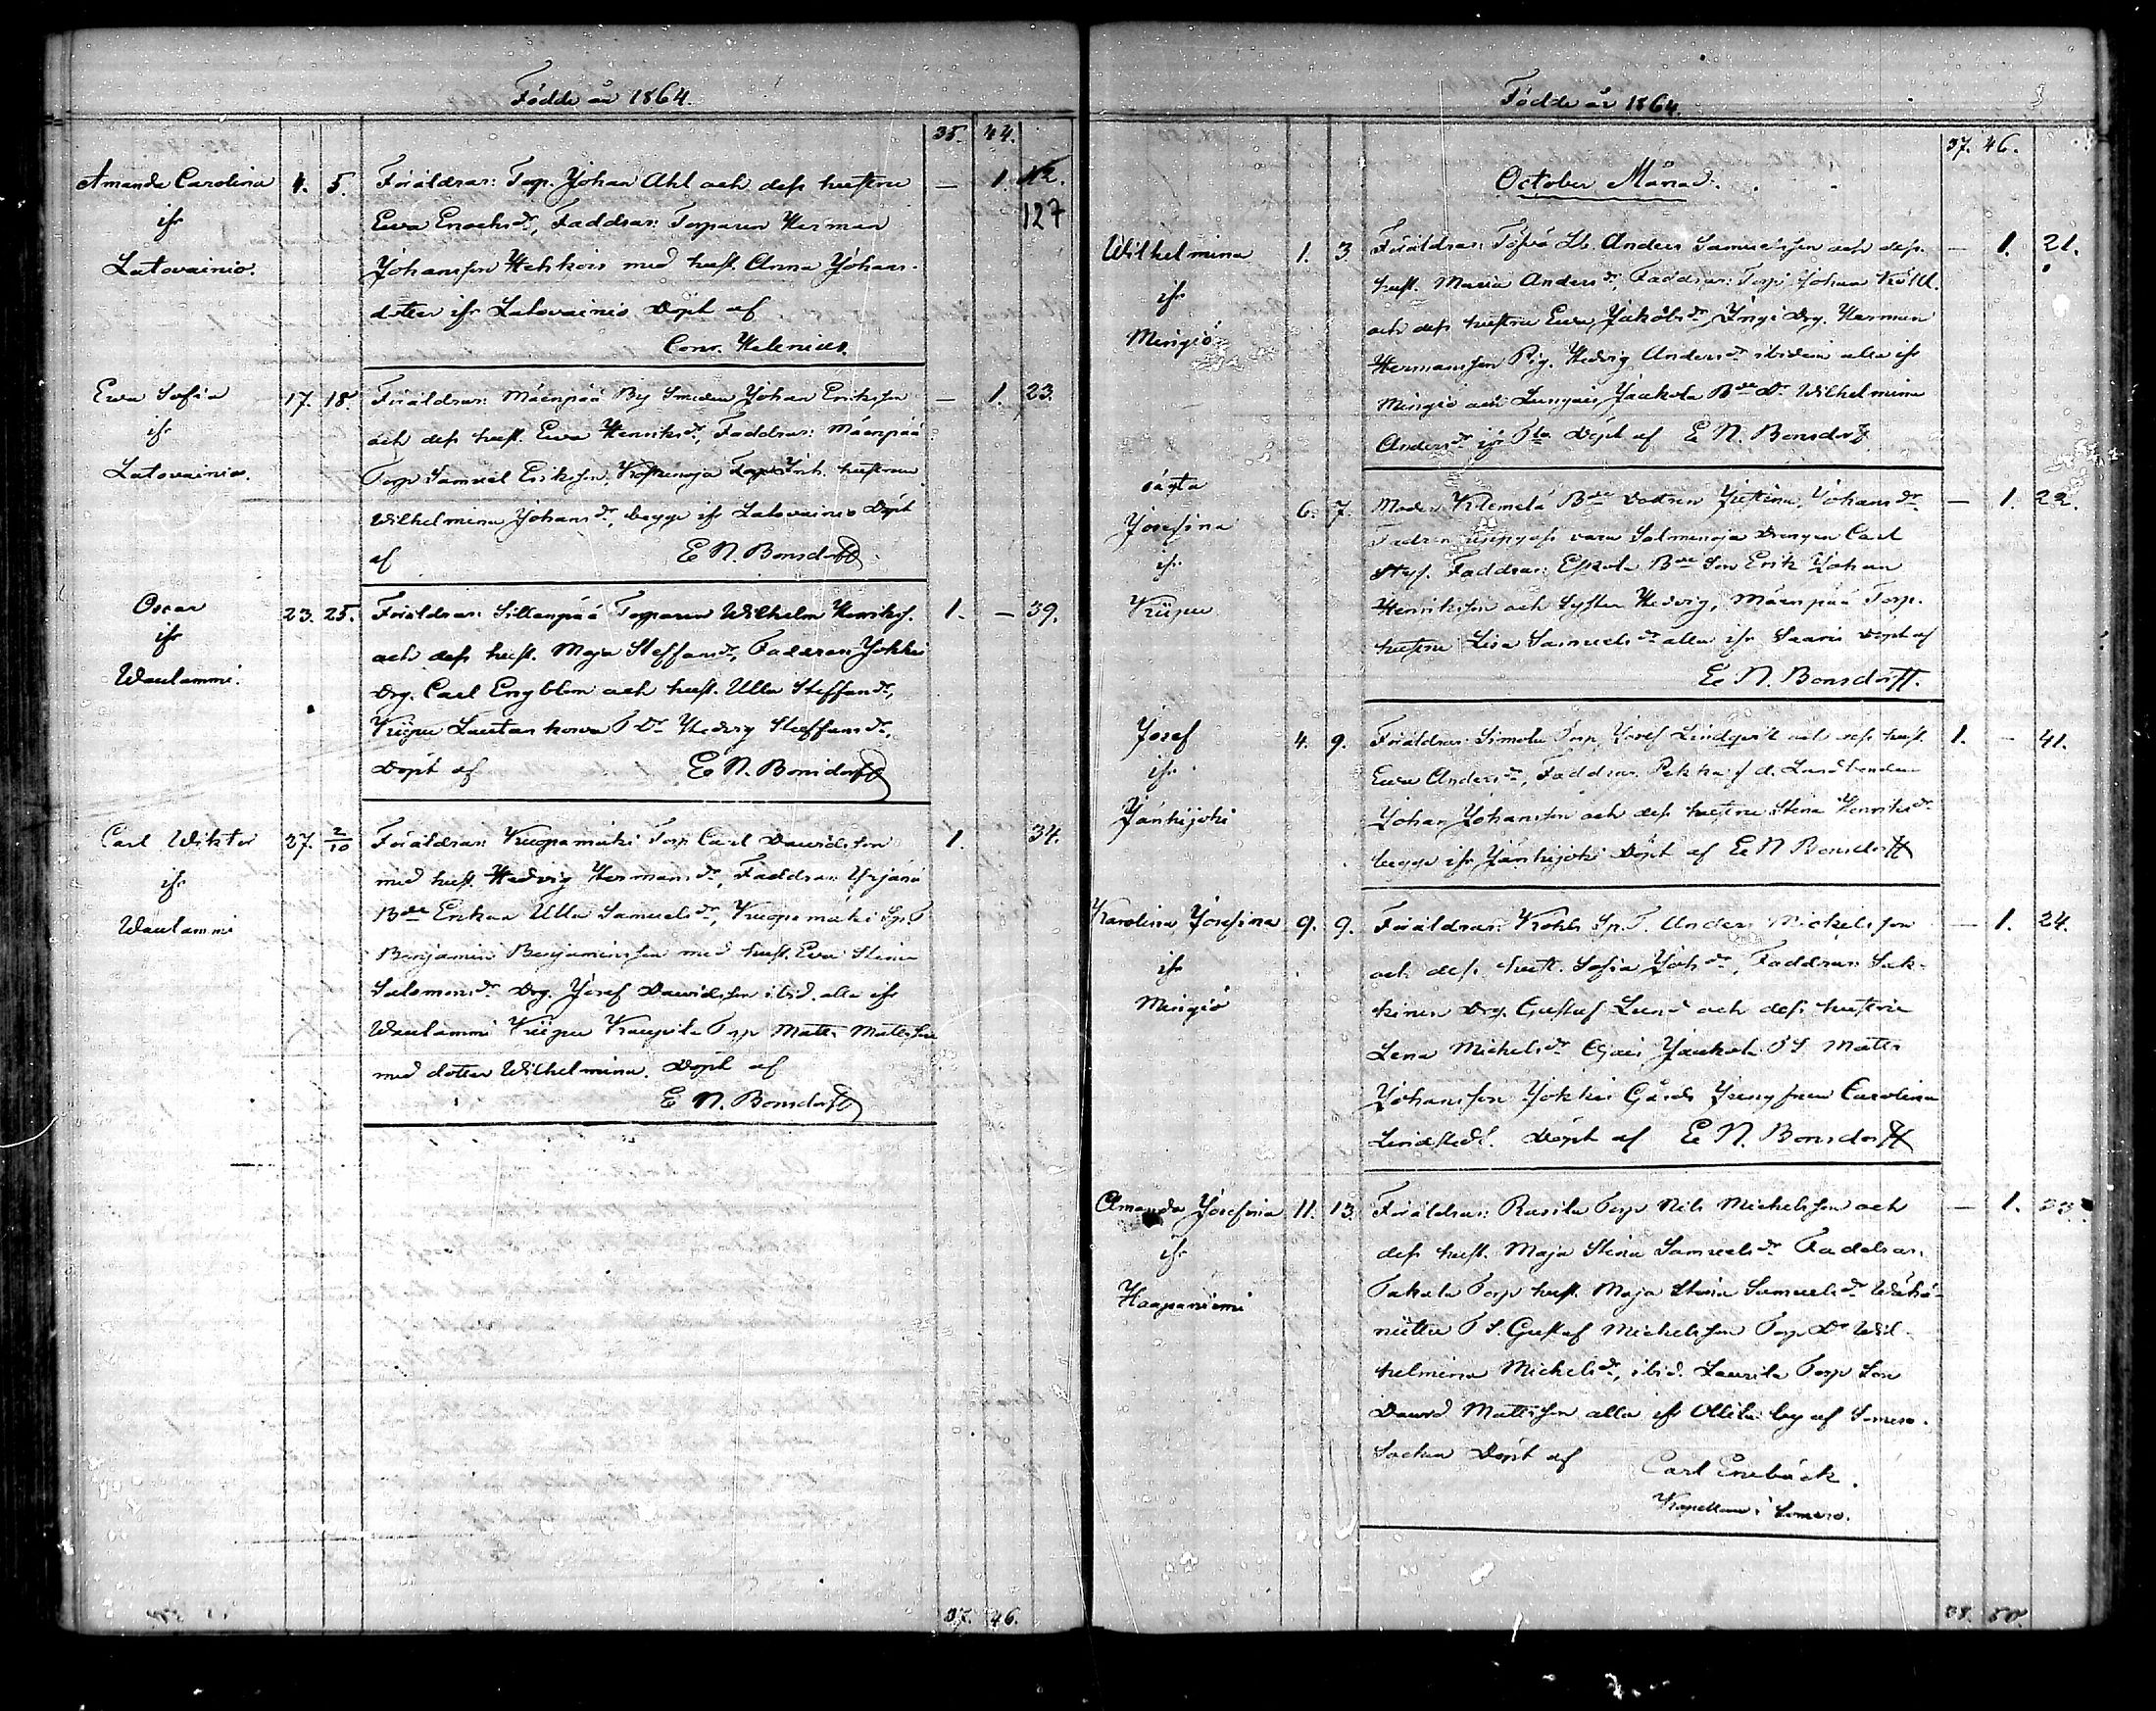 Födde år 1864.
35. 44.
Amanda Carolina 4. 5. Föräldrar: Torp. Johan Ahl och dess hustru — 1 12.
ifr Ewa Enochsdr, Faddrar: Torparen Herman 127
Latovainio. Johansson Hehkois med hust. Anna Johans-
dotter ifr Latovainio Döpt af
Conr. Helenius.
Ewa Sofia 17. 18. Föräldrar: Mäenpää By Smeden Johan Eriksson — 1. 23.
ifr och dess hust. Ewa Henriksdr, Faddrar: Mäenpää
Latovainio. Torp Samuel Eriksson, Inh. hustrun
Wilhelmina Johansdr, begge ifr Latovainio Döpt
af E N. Bonsdorff
Oscar 23. 25. Föräldrar: Sillanpää Torparen Wilhelm Henrikss. 1. — 39.
ifr och dess hust. Maja Steffansdr, Faddrar Jokkis
Waulammi. Drg. Carl Engblom och hust. Ulla Steffansdr,
Kiipu Lautaskorva T Dr Hedvig Steffansdr,
Döpt af E N. Bonsdorff
Carl Wiktor 27. 2/10 Föräldrar: Kuopamäki Torp Carl Davidsson 1. 34.
ifr med hust. Hedvig Hermansdr, Faddrar: Yrjänä
Waulammi Bde Enkan Ulla Samuelsdr, Kuopamäki Sp. T
Benjamin Benjaminsson med hust. Eva Stina
Salomonsdr Drg. Josef Davidsson ibid. alla ifr
Waulammi Kiipu Torp Matts Mattsson
med dotter Wilhelmina. Döpt af
E N. Bonsdorff
37. 46.
Födde år 1864.
37. 46.
October Månad.
Wilhelmina 1. 3 Föräldrar: Lb. Anders Samuelsson och dess — 1. 21.
ifr hust. Maria Andersdr, Faddrar: Torp Johan
Mingiö och dess hustru Ewa Jakobsdr, Drg. Herman
Hermansson Pig. Hedvig Andersdr ibidem alla ifr
Mingiö och Jaakola Bde Dr Wilhelmina
Andersdr ifr Döpt af E N. Bonsdorff
oäkta
Josefina 6. 7. Moder Klemelä Bde Dottren Justina Johansdr — 1. 22.
ifr Fadren uppgafs vara Salmenoja Drengen Carl
Kiipu Faddrar: Eskola Bde Son Erik Johan
Henriksson och Syster Hedvig, Mäenpää Torp.
hustru Lisa Samuelsdr alla ifr Saaris Döpt af
E. N. Bonsdorff.
Josef 4. 9. Föräldrar: Simola Torp Josef Lindqvist och dess hust. 1. — 41.
ifr Ewa Andersdr, Faddrar: Pekka f d. Landbonden
Jänhijoki Johan Johansson och dess hustru Stina Henriksdr
begge ifr Jänhijoki Döpt af E N Bonsdorff
Karolina Josefina 9. 9. Föräldrar: Sp. T. Anders Michelsson — 1. 24.
ifr och dess hust. Sofia Johdr, Faddrar: Sak-
Mingiö kinen Drg. Gustaf Lund och dess hustru
Lena Michelsdr Jaakola T S Matts
Johansson Jokkis Gårds Jungfrun Carolina
Lindstedt. Döpt af E N. Bonsdorff
Amanda Josefina 11. 13. Föräldrar: Rasila Torp Nils Michelsson och — 1.
ifr dess hust. Maja Stina Samuelsdr Faddrar:
Haapaniemi Takala Torp hust. Maja Stina Samuelsdr Wähä-
T S. Gustaf Michelsson Torp Dr Wil-
helmina Michelsdr, ibid. Laurila Torp Son
David Mattsson alla ifr Ollila by af Somero
Socken Döpt af Carl Enebäck.
Kapellan i Somero.
38. 50.